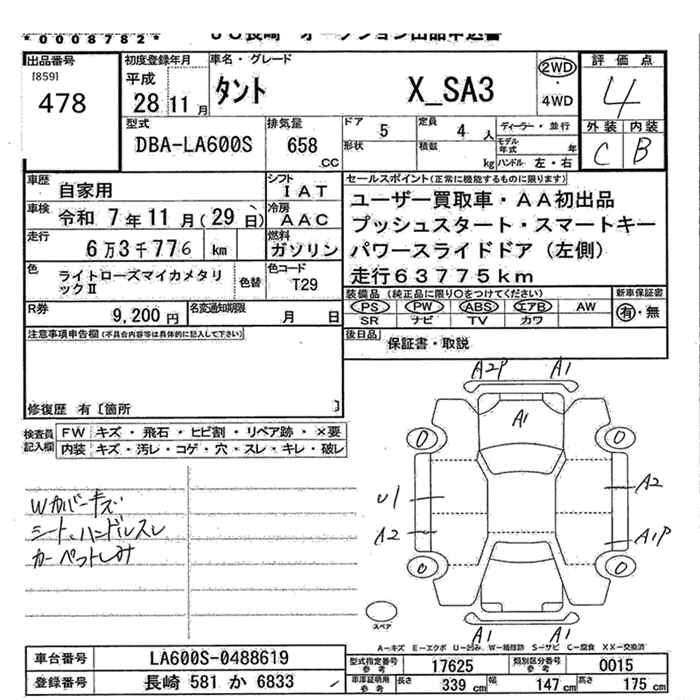 *0008782* JU長崎 オークション出品申込書
出品番号
[859]
478
初度登録年月
平成
28 11 月
車名・グレード
タント X_SA3
2WD
4WD
評価点
4
外装 内装
C B
型式
DBA-LA600S
排気量
658 CC
ドア 5
形状
定員 4 人
積載 kg
ディーラー・並行
モデル年式 年
ハンドル 左・右
車歴
自家用
シフト
IAT
車検
令和 7年11月(29日)
冷房
AAC
走行
6万3千776 km
燃料
ガソリン
色
ライトローズマイカメタリックⅡ
色替
色コード
T29
R券
9,200 円
名変通知期限
月 日
セールスポイント(正常に機能するものに限ります)
ユーザー買取車・AA初出品
プッシュスタート・スマートキー
パワースライドドア(左側)
走行63775km
装備品(純正品に限り○をつけてください)
PS PW ABS エアB AW
SR ナビ TV カワ
新車保証書
有・無
後日品
保証書・取説
注意事項申告欄(不具合内容等は具体的に記入して下さい)
修復歴 有〔箇所 〕
検査員記入欄
FW キズ・飛石・ヒビ割・リペア跡・×要
内装 キズ・汚レ・コゲ・穴・スレ・キレ・破レ
Wカバーキズ
シート、ハンドルスレ
カーペットしみ
A2P A1
A1
U1
A2
A2
A1P
A1 A1
スペア
A-キズ E-エクボ U-凹み W-補修跡 S-サビ C-腐食 XX-交換済
車台番号
LA600S-0488619
登録番号
長崎 581 か 6833
型式指定番号 参考
17625
類別区分番号 参考
0015
車庫証明用 参考
長さ 339 cm
幅 147 cm
高さ 175 cm